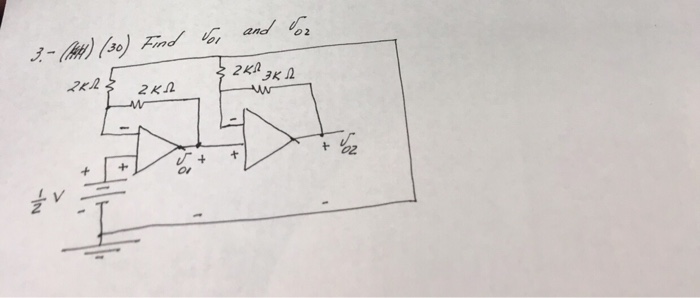 3.- (30) Find υ01 and υ02
2KΩ 2KΩ 2KΩ 3KΩ
- -
+ + υ01 + + + υ02
1/2 V
- - -